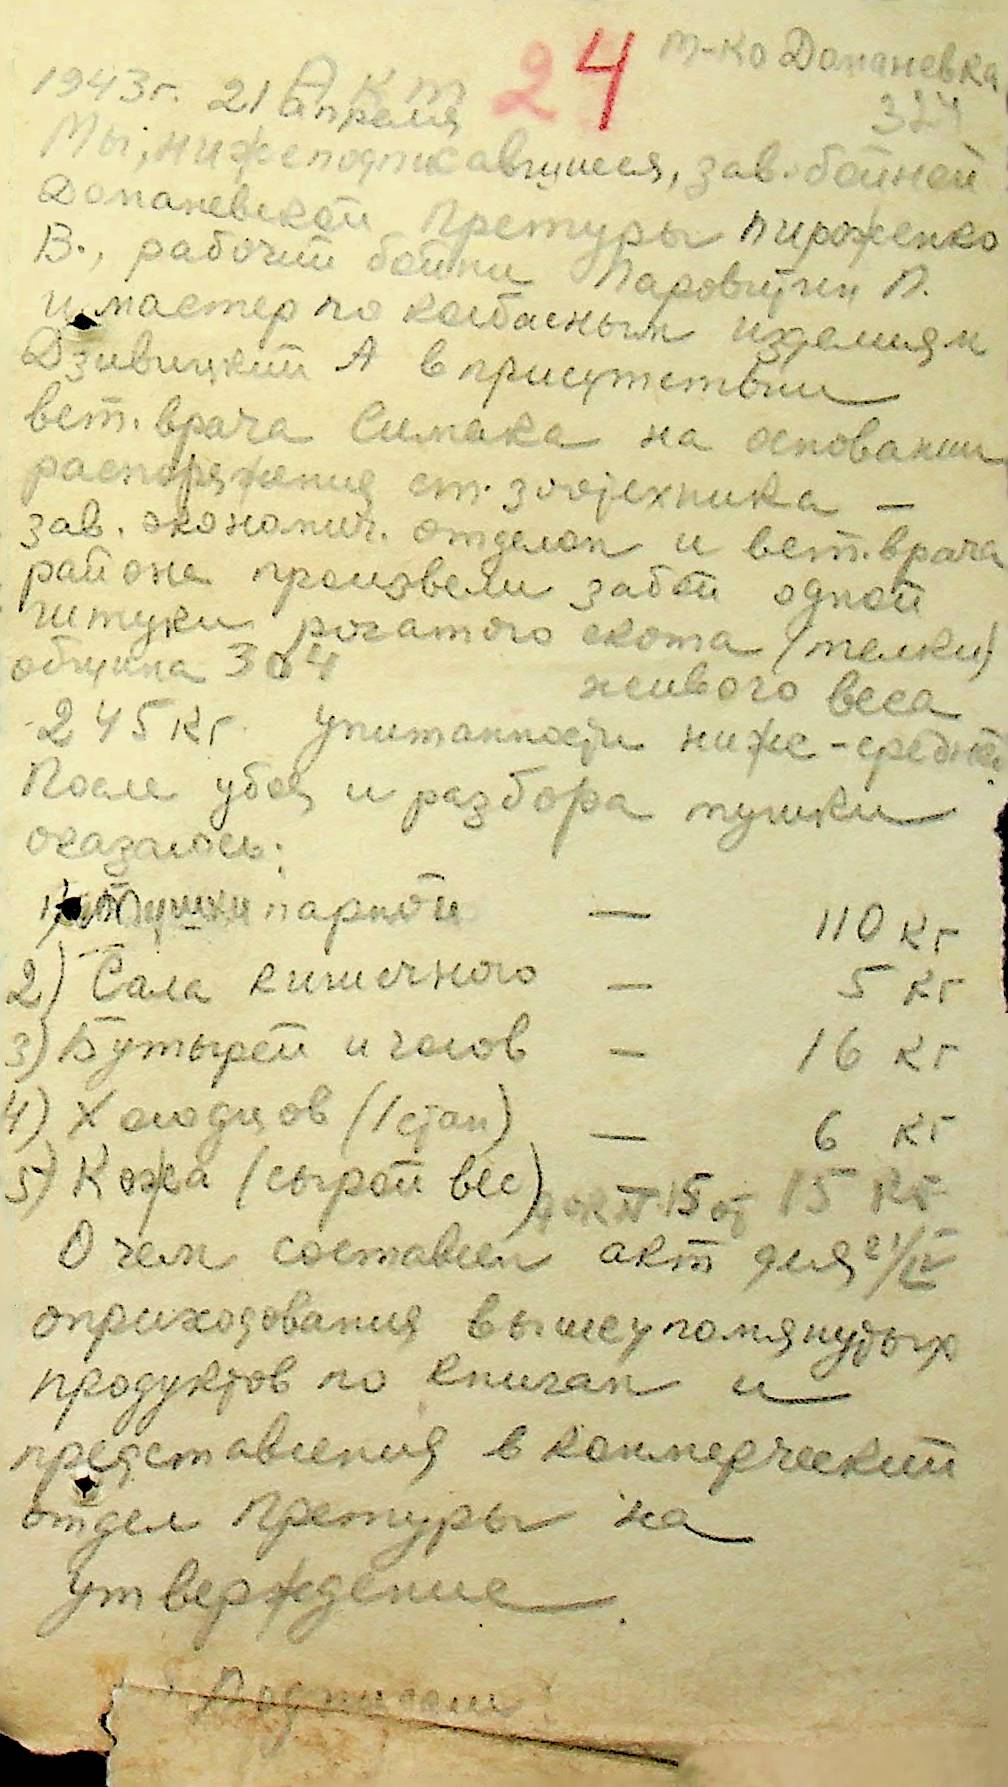 Акт 24 м-ко Доманевка
1943г. 21 апреля 324
Мы, нижеподписавшиеся, зав. бойней
Доманевской Претуры Пироженко
В., рабочий бойни Паровщик П.
и мастер по колбасным изделиям
Дзивицкий А в присутствии
вет. врача Симака на основании
распоряжения ст. зоотехника —
зав. экономич. отделом и вет. врача
района произвели забой одной
штуки рогатого скота (телки)
община 304 живого веса
245 кг. упитанности ниже-средней.
После убоя и разбора тушки
оказалось:
1) Тушки парной — 110 кг
2) Сала кишечного — 5 кг
3) Бутырей и голов — 16 кг
4) Холодцов (1 стан) — 6 кг
5) Кожа (сырой вес) 15 кг
док № 15 от 21/IV
О чем составлен акт для
оприходования вышеупомянутых
продуктов по книгам и
представления в коммерческий
отдел Претуры на
утверждение.
Подписи